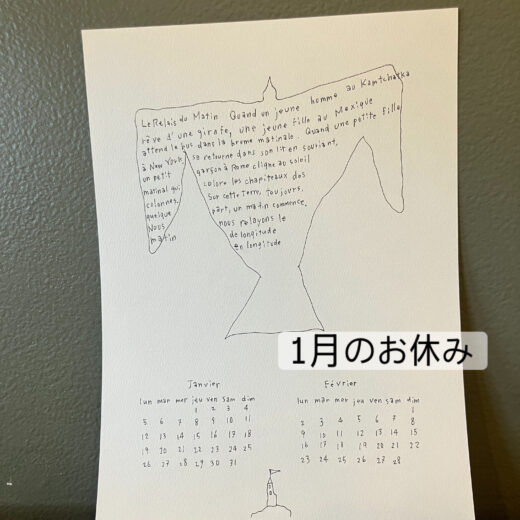 Le Relais du Matin Quand un jeune homme au Kamtchatka
rêve d'une girafe, une jeune fille au Mexique
attend le bus dans la brume matinale. Quand une petite fille
à New York se retourne dans son lit en souriant,
un petit garçon à Rome cligne au soleil
matinal qui colore les chapiteaux des
colonnes. Sur cette terre, toujours,
quelque part, un matin commence.
Nous nous relayons le
matin de longitude
en longitude
1月のお休み
Janvier
lun mar mer jeu ven sam dim
1 2 3 4
5 6 7 8 9 10 11
12 13 14 15 16 17 18
19 20 21 22 23 24 25
26 27 28 29 30 31
Février
lun mar mer jeu ven sam dim
1
2 3 4 5 6 7 8
9 10 11 12 13 14 15
16 17 18 19 20 21 22
23 24 25 26 27 28